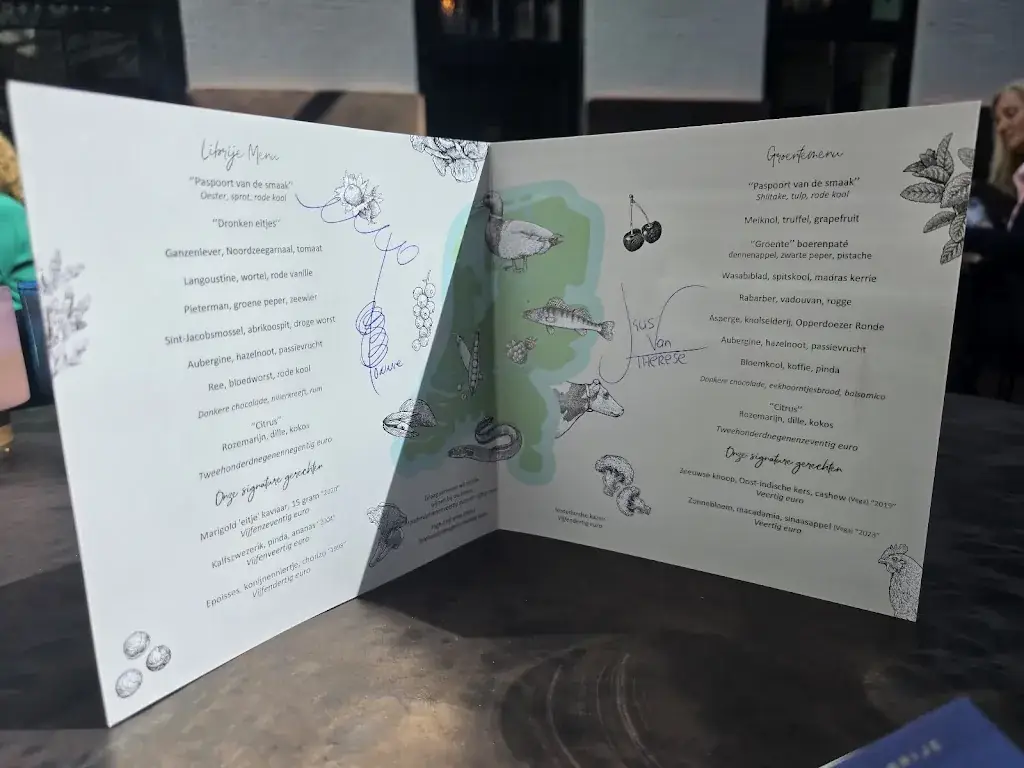 Librije Menu
"Paspoort van de smaak"
Oester, sprot, rode kool
"Dronken eitjes"
Ganzenlever, Noordzeegarnaal, tomaat
Langoustine, wortel, rode vanille
Pieterman, groene peper, zeewier
Sint-Jacobsmossel, abrikoospit, droge worst
Aubergine, hazelnoot, passievrucht
Ree, bloedworst, rode kool
Donkere chocolade, rivierkreeft, rum
"Citrus"
Rozemarijn, dille, kokos
Tweehonderdnegenennegentig euro
Onze signature gerechten
Marigold 'eitje' kaviaar, 15 gram
Vijfenzeventig euro
Kalfszwezerik, pinda, ananas
Vijfenveertig euro
Epoisses, konijnenniertje, chorizo
Vijfendertig euro
Groentemenu
"Paspoort van de smaak"
Shiitake, tulp, rode kool
Meiknol, truffel, grapefruit
"Groente" boerenpaté
dennenappel, zwarte peper, pistache
Wasabiblad, spitskool, madras kerrie
Rabarber, vadouvan, rogge
Asperge, knolselderij, Opperdoezer Ronde
Aubergine, hazelnoot, passievrucht
Bloemkool, koffie, pinda
Donkere chocolade, eekhoorntjesbrood, balsamico
"Citrus"
Rozemarijn, dille, kokos
Tweehonderdnegenenzeventig euro
Onze signature gerechten
Zeeuwse knoop, Oost-Indische kers, cashew (Vega) "2019"
Veertig euro
Zonnebloem, macadamia, sinaasappel (Vega) "2023"
Veertig euro
Van
Thérèse
RIJE